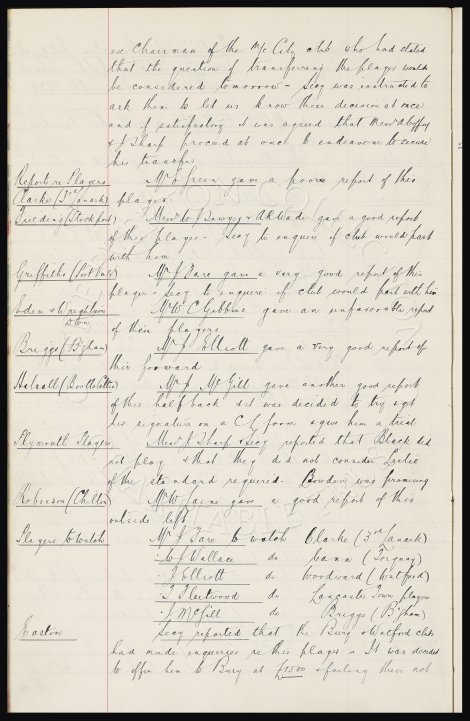 ex Chairman of the M/c City club who had stated
that the question of transferring the player would
be considered tomorrow – Secy was instructed to
ask them to let us know their decision at once
and if satisfactory it was agreed that Messrs Coffey
& J Sharp proceed at once to endeavour to secure
his transfer
Reports re Players
Mr E Green gave a poor report of this
Clarke (3rd Lanark)
player
Fielding (Stockport)
Messrs W J Sawyer & A R Wade gave a good report
of this player – Secy to enquire if club would part
with him
Griffiths (Port Vale)
Mr J Fare gave a very good report of this
player – Secy to enquire if club would part with him
Eden & Wrightson
Mr W C Gibbins gave an unfavorable report
D'ton
of these players
Briggs (B'pham)
Mr J Elliott gave a very good report of
this forward
Halsall (Bootle Celtic)
Mr J McGill gave another good report
of this half back & it was decided to try & get
his signature on a C/L form & give him a trial
Plymouth Players
Messrs J Sharp & Secy reported that Black did
not play & that they did not consider Leslie
of the standard required. Bowden was promising
Robinson (Chilton)
Mr W Laine gave a good report of this
outside left
Players to Watch
Mr J Fare to watch Clarke (3rd Lanark)
" W J Wallace do Cann (Torquay)
" J Elliott do Woodward (Watford)
" T Fleetwood do Lancaster Town player
" J McGill do Briggs (B'pham)
Easton
Secy reported that the Bury & Watford clubs
had made enquiries re this player – It was decided
to offer him to Bury at £1500 & failing their not